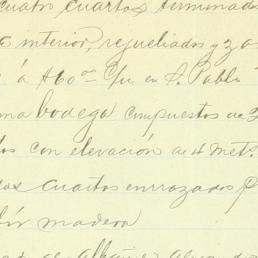 cuatro cuartos terminados
interior, rejueliados y
á $60.00 c/u en S. Pablo
una bodega compuestos de
con elevación de 4 mets.
cuartos enrrazados
madera
de